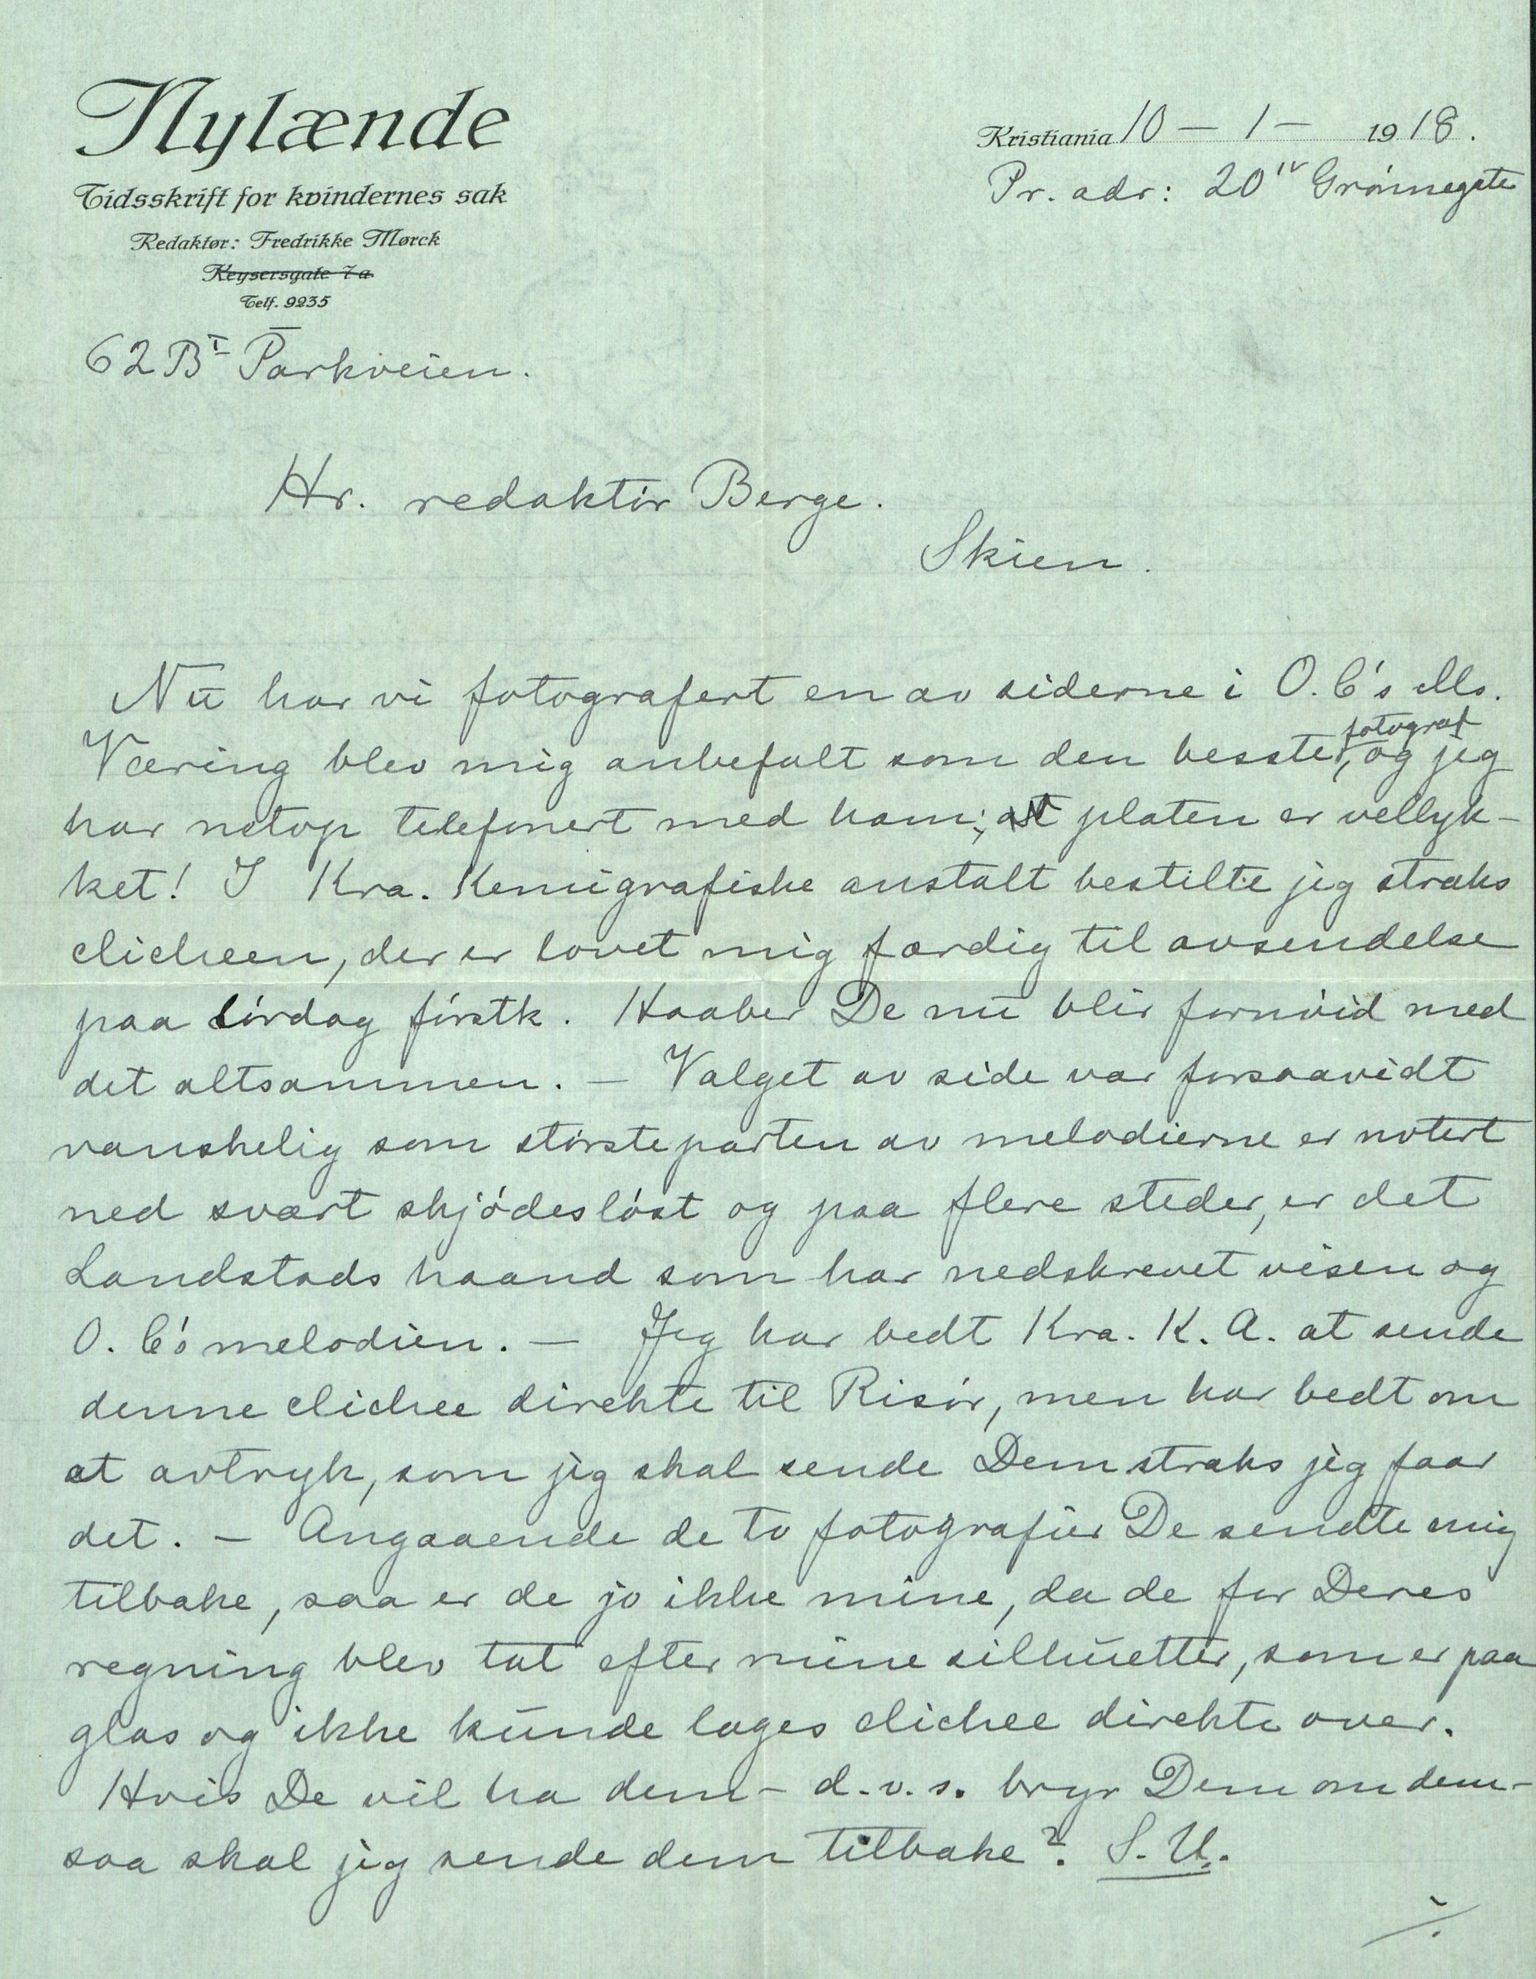 Nylænde
Tidsskrift for kvindernes sak
Redaktør: Fredrikke Mørck
Keysersgate 7 a
Telf. 9235
62 B I Parkveien.
Kristiania 10 – 1 – 1918.
Pr. adr: 20 IV Grønnegate
Hr. redaktør Berge.
Skien.
Nu har vi fotografert en av siderne i O. C's Ms.
Væring blev mig anbefalt som den besste fotograf, og jeg
har netop telefonert med ham; at platen er vellyk-
ket! I Kra. Kemigrafiske anstalt bestilte jeg straks
clicheen, der er lovet mig færdig til avsendelse
paa lørdag førstk. Haaber De nu blir fornøid med
det altsammen. – Valget av side var forsaavidt
vanskelig som størsteparten av melodierne er notert
ned svært skjødesløst og paa flere steder, er det
Landstads haand som har nedskrevet visen og
O. C's melodien. – Jeg har bedt Kra. K. A. at sende
denne clichee direkte til Risør, men har bedt om
et avtryk, som jeg skal sende Dem straks jeg faar
det. – Angaaende de to fotografier De sendte mig
tilbake, saa er de jo ikke mine, da de for Deres
regning blev tat efter mine silhuetter, som er paa
glas og ikke kunde lages clichee direkte over.
Hvis De vil ha dem – d.v.s. bryr Dem om dem –
saa skal jeg sende dem tilbake? S. U.
./.